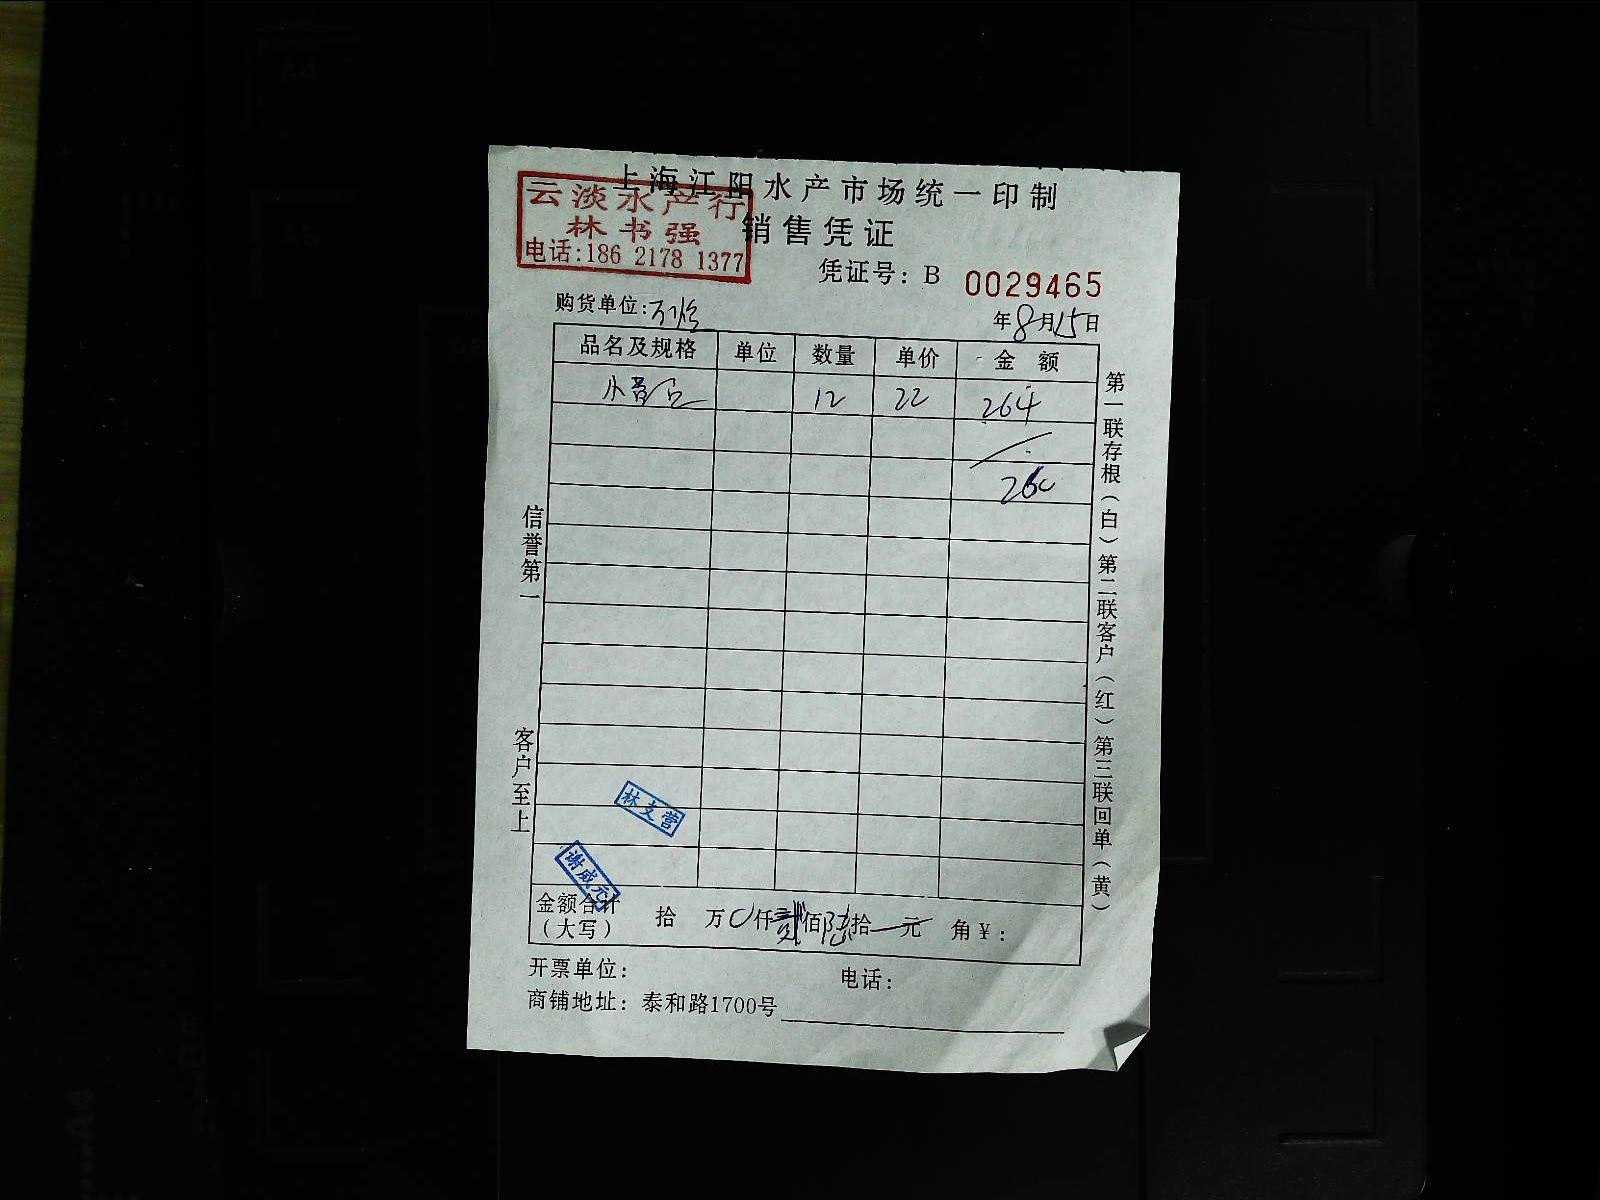 上海江阳水产市场统一印制
云淡水产行
林书强
电话:186 2178 1377
销售凭证
凭证号: B 0029465
购货单位:
年8月15日
品名及规格 单位 数量 单价 金额
小 12 22 264
260
信誉第一
客户至上
第一联存根(白)第二联客户(红)第三联回单(黄)
林支营
谢威元
金额合计 拾 万0仟贰佰陆拾一元 角¥:
(大写)
开票单位: 电话:
商铺地址: 泰和路1700号